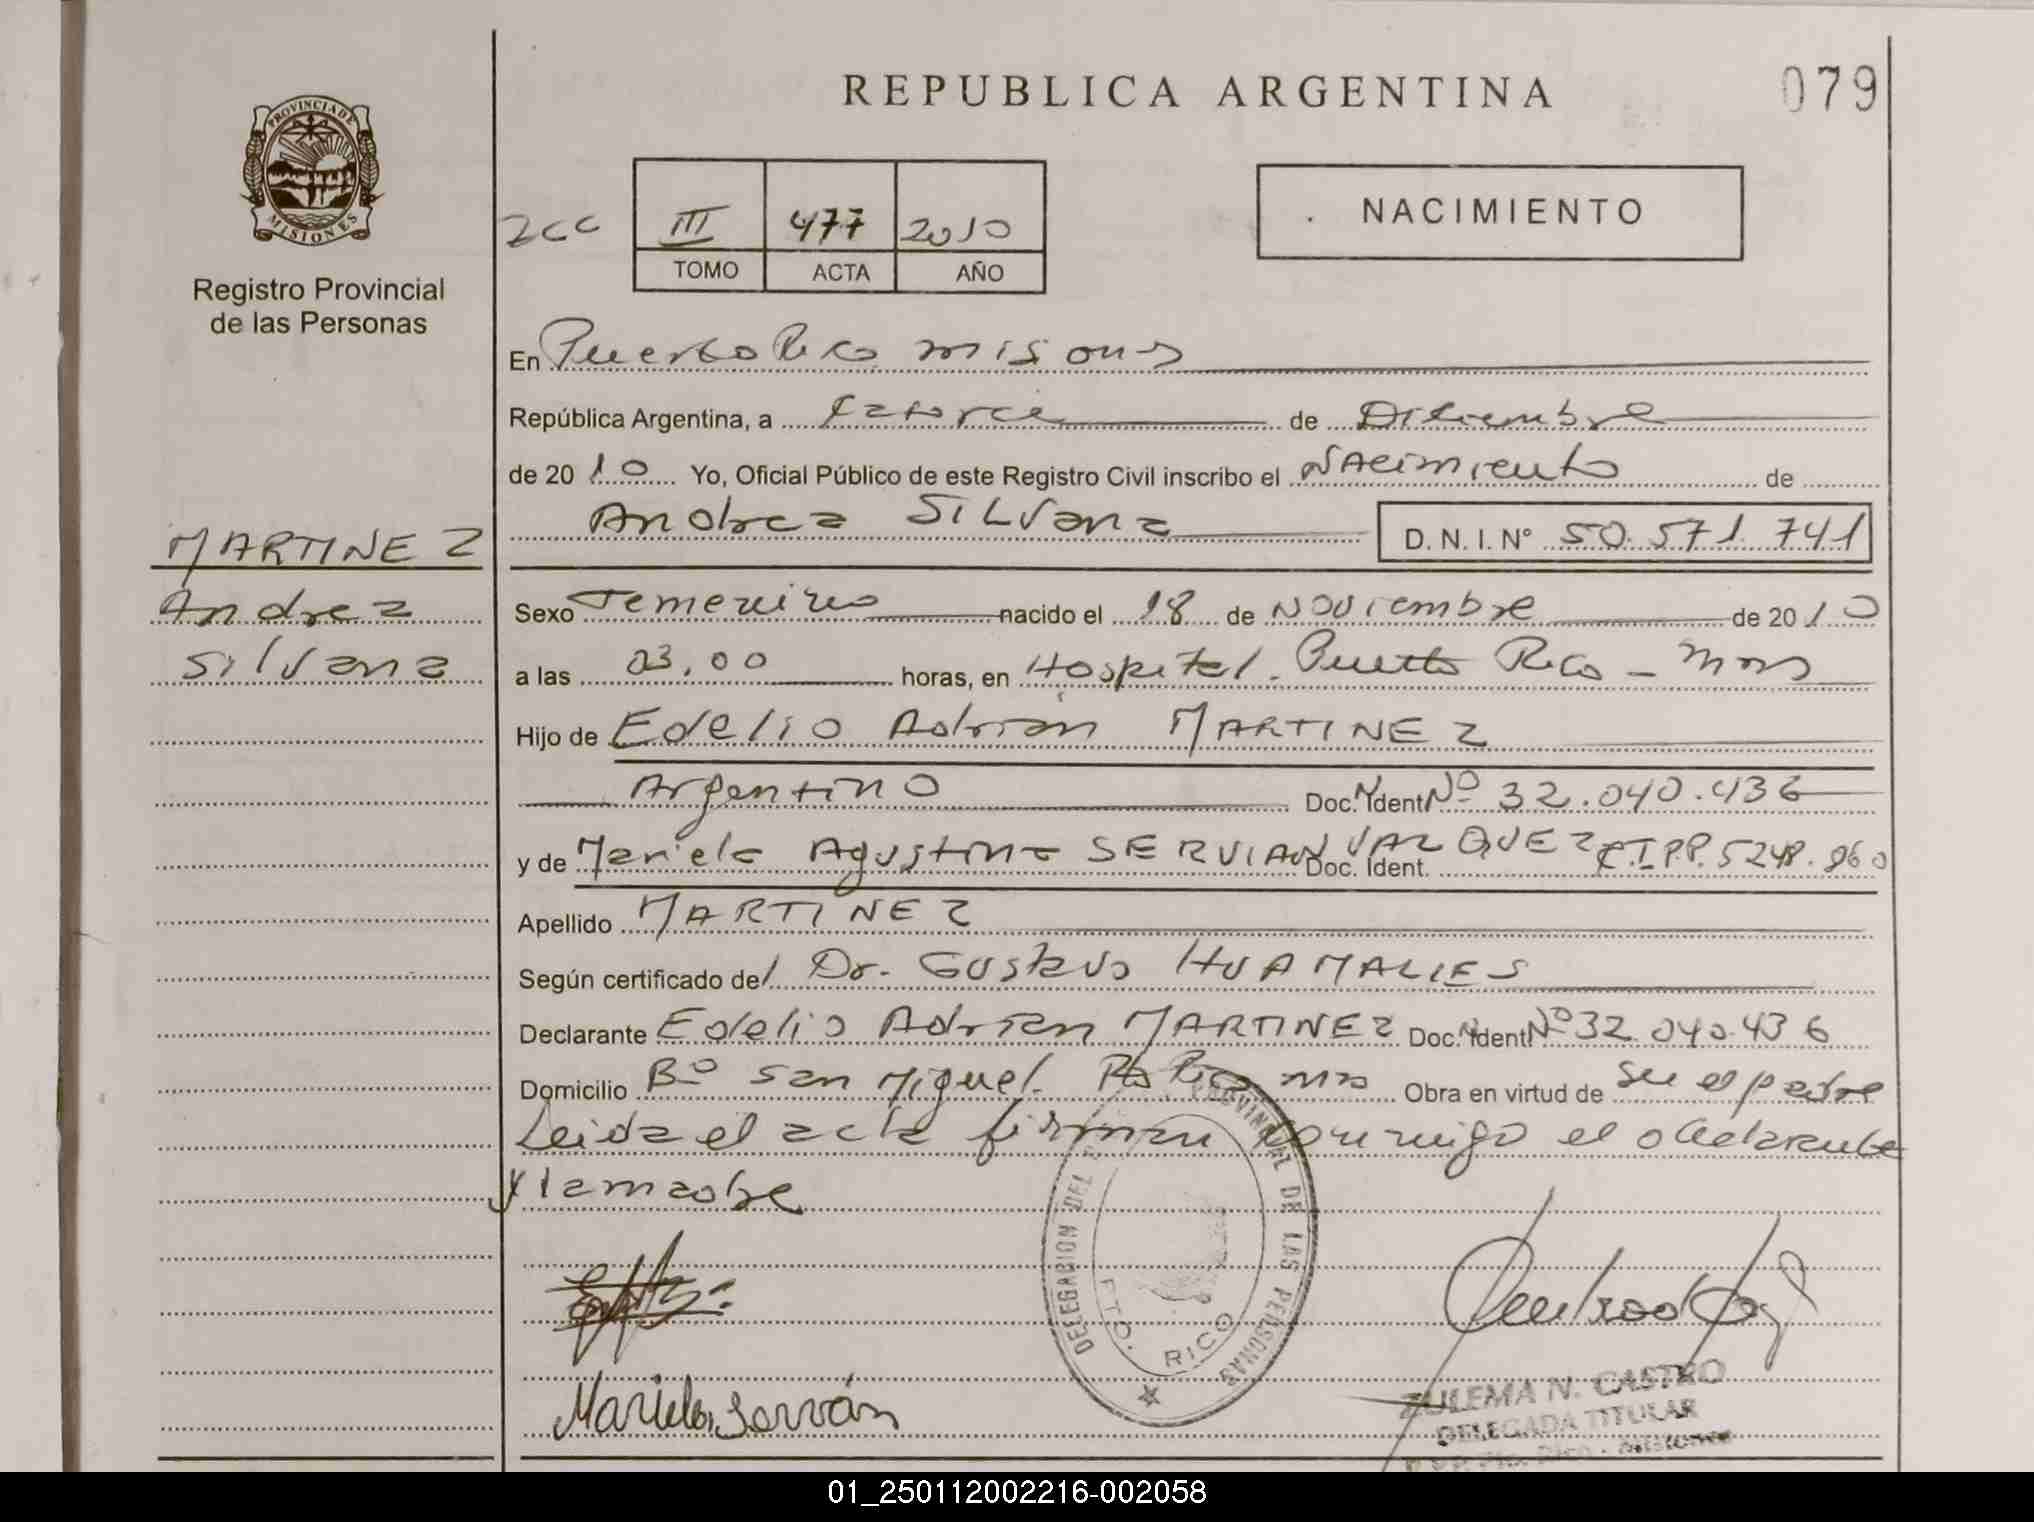 REPUBLICA ARGENTINA
079
PROVINCIA DE
MISIONES
Registro Provincial
de las Personas
III 477 2010
TOMO ACTA AÑO
NACIMIENTO
En Puerto Rico misiones
República Argentina, a Catorce de Diciembre
de 2010 Yo, Oficial Público de este Registro Civil inscribo el Nacimiento de
Andrea SILVana D. N. I. N° 50.571.741
MARTINEZ
Andrea
Silvana
Sexo Femenino nacido el 18 de Noviembre de 2010
a las 03,00 horas, en Hospital. Puerto Rico - Mnes
Hijo de Edelio Adrian MARTINEZ
Argentino Doc. Ident. Nº 32.040.436
y de Mariela Agustina SERVIAN VAZQUEZ Doc. Ident. C.I.P.P. 5248.960
Apellido MARTINEZ
Según certificado del Dr. Gustavo HUAMALIES
Declarante Edelio Adrian MARTINEZ Doc. Ident. Nº 32.040.436
Domicilio Bº San Miguel. Pto Rico mns Obra en virtud de ser el padre
Leida el acta firman conmigo el declarante
y la madre
DELEGACION DEL PROVINCIAL DE LAS PERSONAS
PTO. RICO
Mariela Servián
ZULEMA N. CASTRO
DELEGADA TITULAR
Pto. Rico - Misiones
01_250112002216-002058